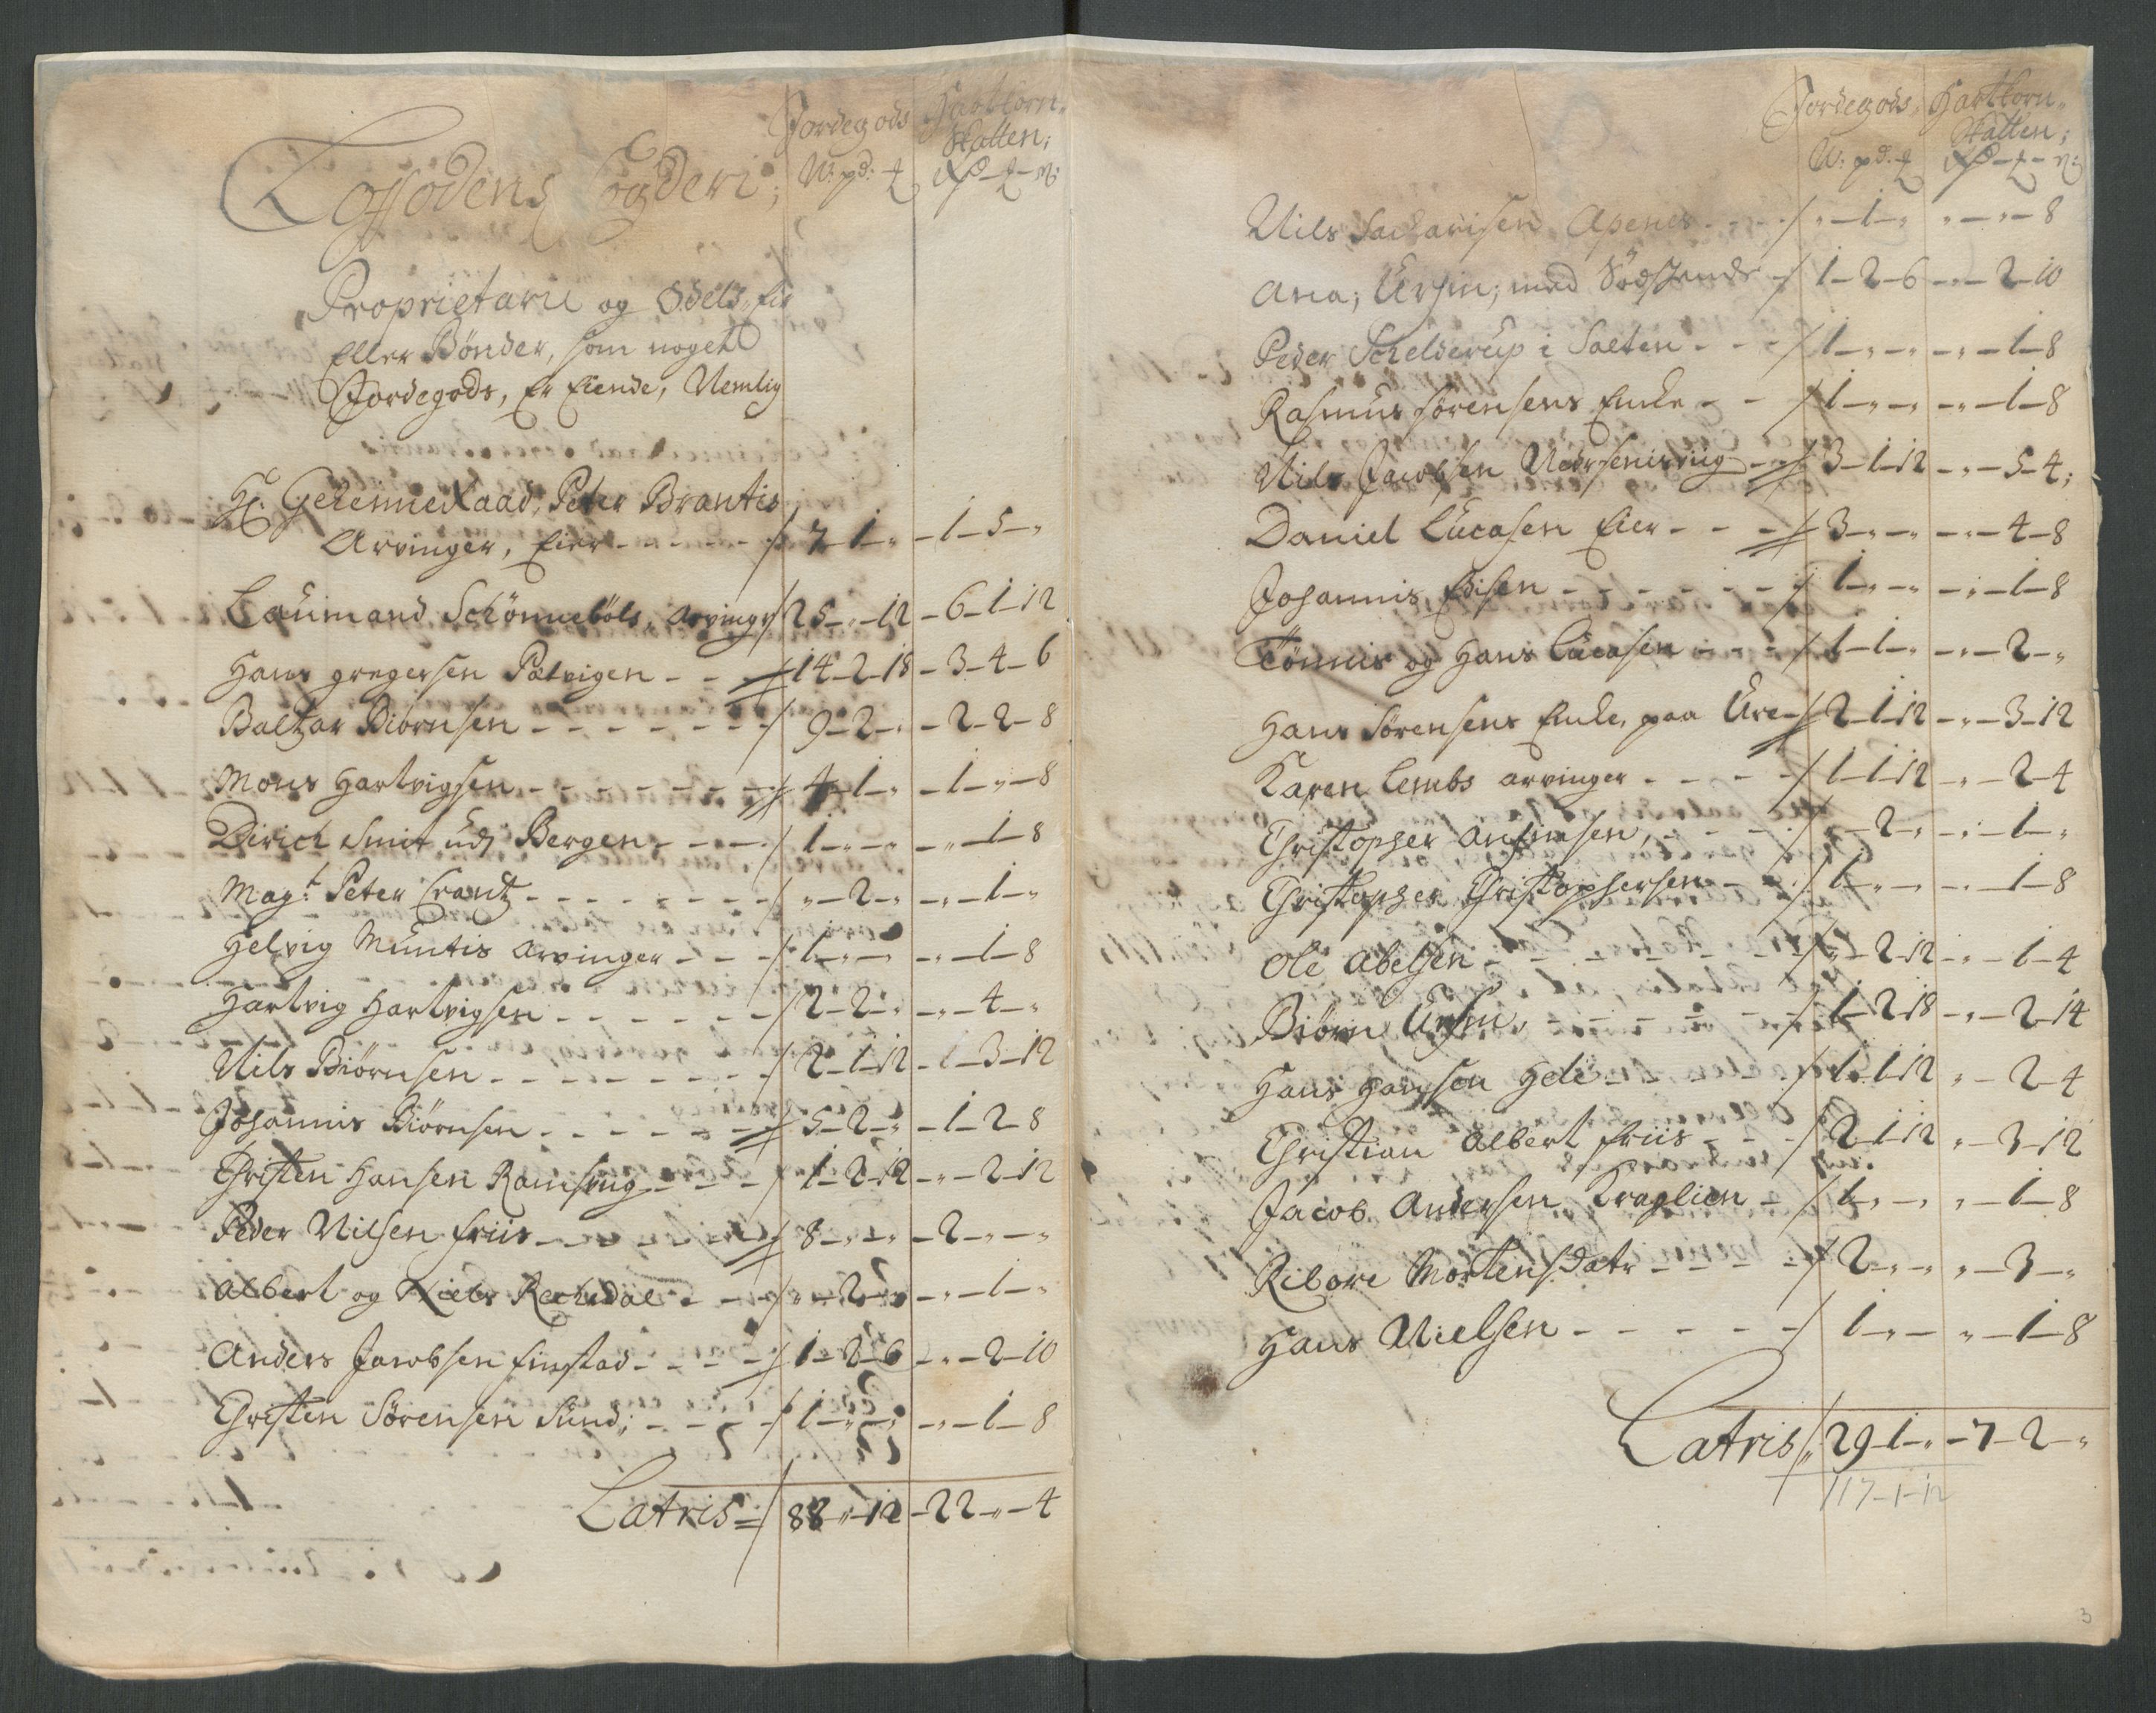 Jordegods Hartkorn„
Skatten;
Loffodens fogderi; W: pd: ⅌ Rd – ⅌ – ß:
Proprietarii og Odels„
Eller Bönder, som noget
Jordegods, Er Eiende, Nemlig
Hr: Geheime Raad, Peter Brantis
Arvinger, Eier - - - - - / 7–1–„ –1–5–„
Laumand Schönnebòls, Arvinger / 25–„–12 –6–1–12
Hans gregersen Pælvigen - - / 14–2–18 –3–4–6
Baltzar Biòrnsen - - - - - - - / 9–2–„ –2–2–8
Mons Hartvigsen - - - - - - - / 4–1–„ –1–„–8
Dirich Smit udj Bergen - - - - / 1–„–„ –„–1–8
Magt: Peter Crantz - - - - - - - - / „–2–„ –„–1–„
Helvig Muntis Arvinger - - - / 1–„–„ –„–1–8
Hartvig Hartvigsen - - - - - - / 2–2–„ –„–4–„
Nils Biörnsen - - - - - - - - / 2–1–12 –„–3–12
Johannis Biörnsen - - - - - - / 5–2–„ –1–2–8
Christen Hansen Ramsvig - - - / 1–2–12 –„–2–12
Peder Nilsen friis - - - - - - - / 8–„–„ –2–„–„
Albert og Niels Rechdal - - - / „–2–„ –„–1–„
Anders Jacobsen finstad - - - - / 1–2–6 –„–2–10
Christen Sörensen Sund; - - - - / 1–„–„ –„–1–8
Latris = / 88–„–12 –22–„–4
Jordegods, Hartkorn„
Skatten;
W: pd: ⅌ Rd – ⅌ – ß:
Nils Sacarisen Apenes - - - / „–1–„ „–„–8
Ana, Ursin; med Södskende - / 1–2–6 –„–2–10
Peder Schelderup i Salten - - - / 1–„–„ –„–1–8
Rasmus Sörensens Encke - - / 1–„–„ –„–1–8
Nils Jacobsen - - / 3–1–12 –„–5–4;
Daniel Lucasen Eier - - - / 3–„–„ –„–4–8
Johannis Edisen - - - - - - - / 1–„–„ –„–1–8
Tönnis og Hans Lucasen - - - / 1–1–„ –„–2–„
Hans Sörensens Encke, paa Ure - / 2–1–12 –„–3–12
Karen Lembs arvinger - - - - / 1–1–12 –„–2–4
Christopher Ansimsen, - - - - / „–2–„ –„–1–„
Christopher Christophersen - - / 1–„–„ –„–1–8
Ole Abelsen - - - - - - - / „–2–12 –„–1–4
Biörn Ursin, - - - - - - - / 1–2–18 –„–2–14
Hans Hansen Hele - - - - - / 1–1–12 „–2–4
Christian Albert friis - - - / 2–1–12 „–3–12
Jacob Andersen Kraglien - / 1–„–„ „–1–8
Ribore Mortensdatr - - - - - / 2–„–„ „–3–„
Hans Nielsen - - - - - - / 1–„–„ „–1–8
Latris / 29–1–„ –7–2–„
117–1–12
3